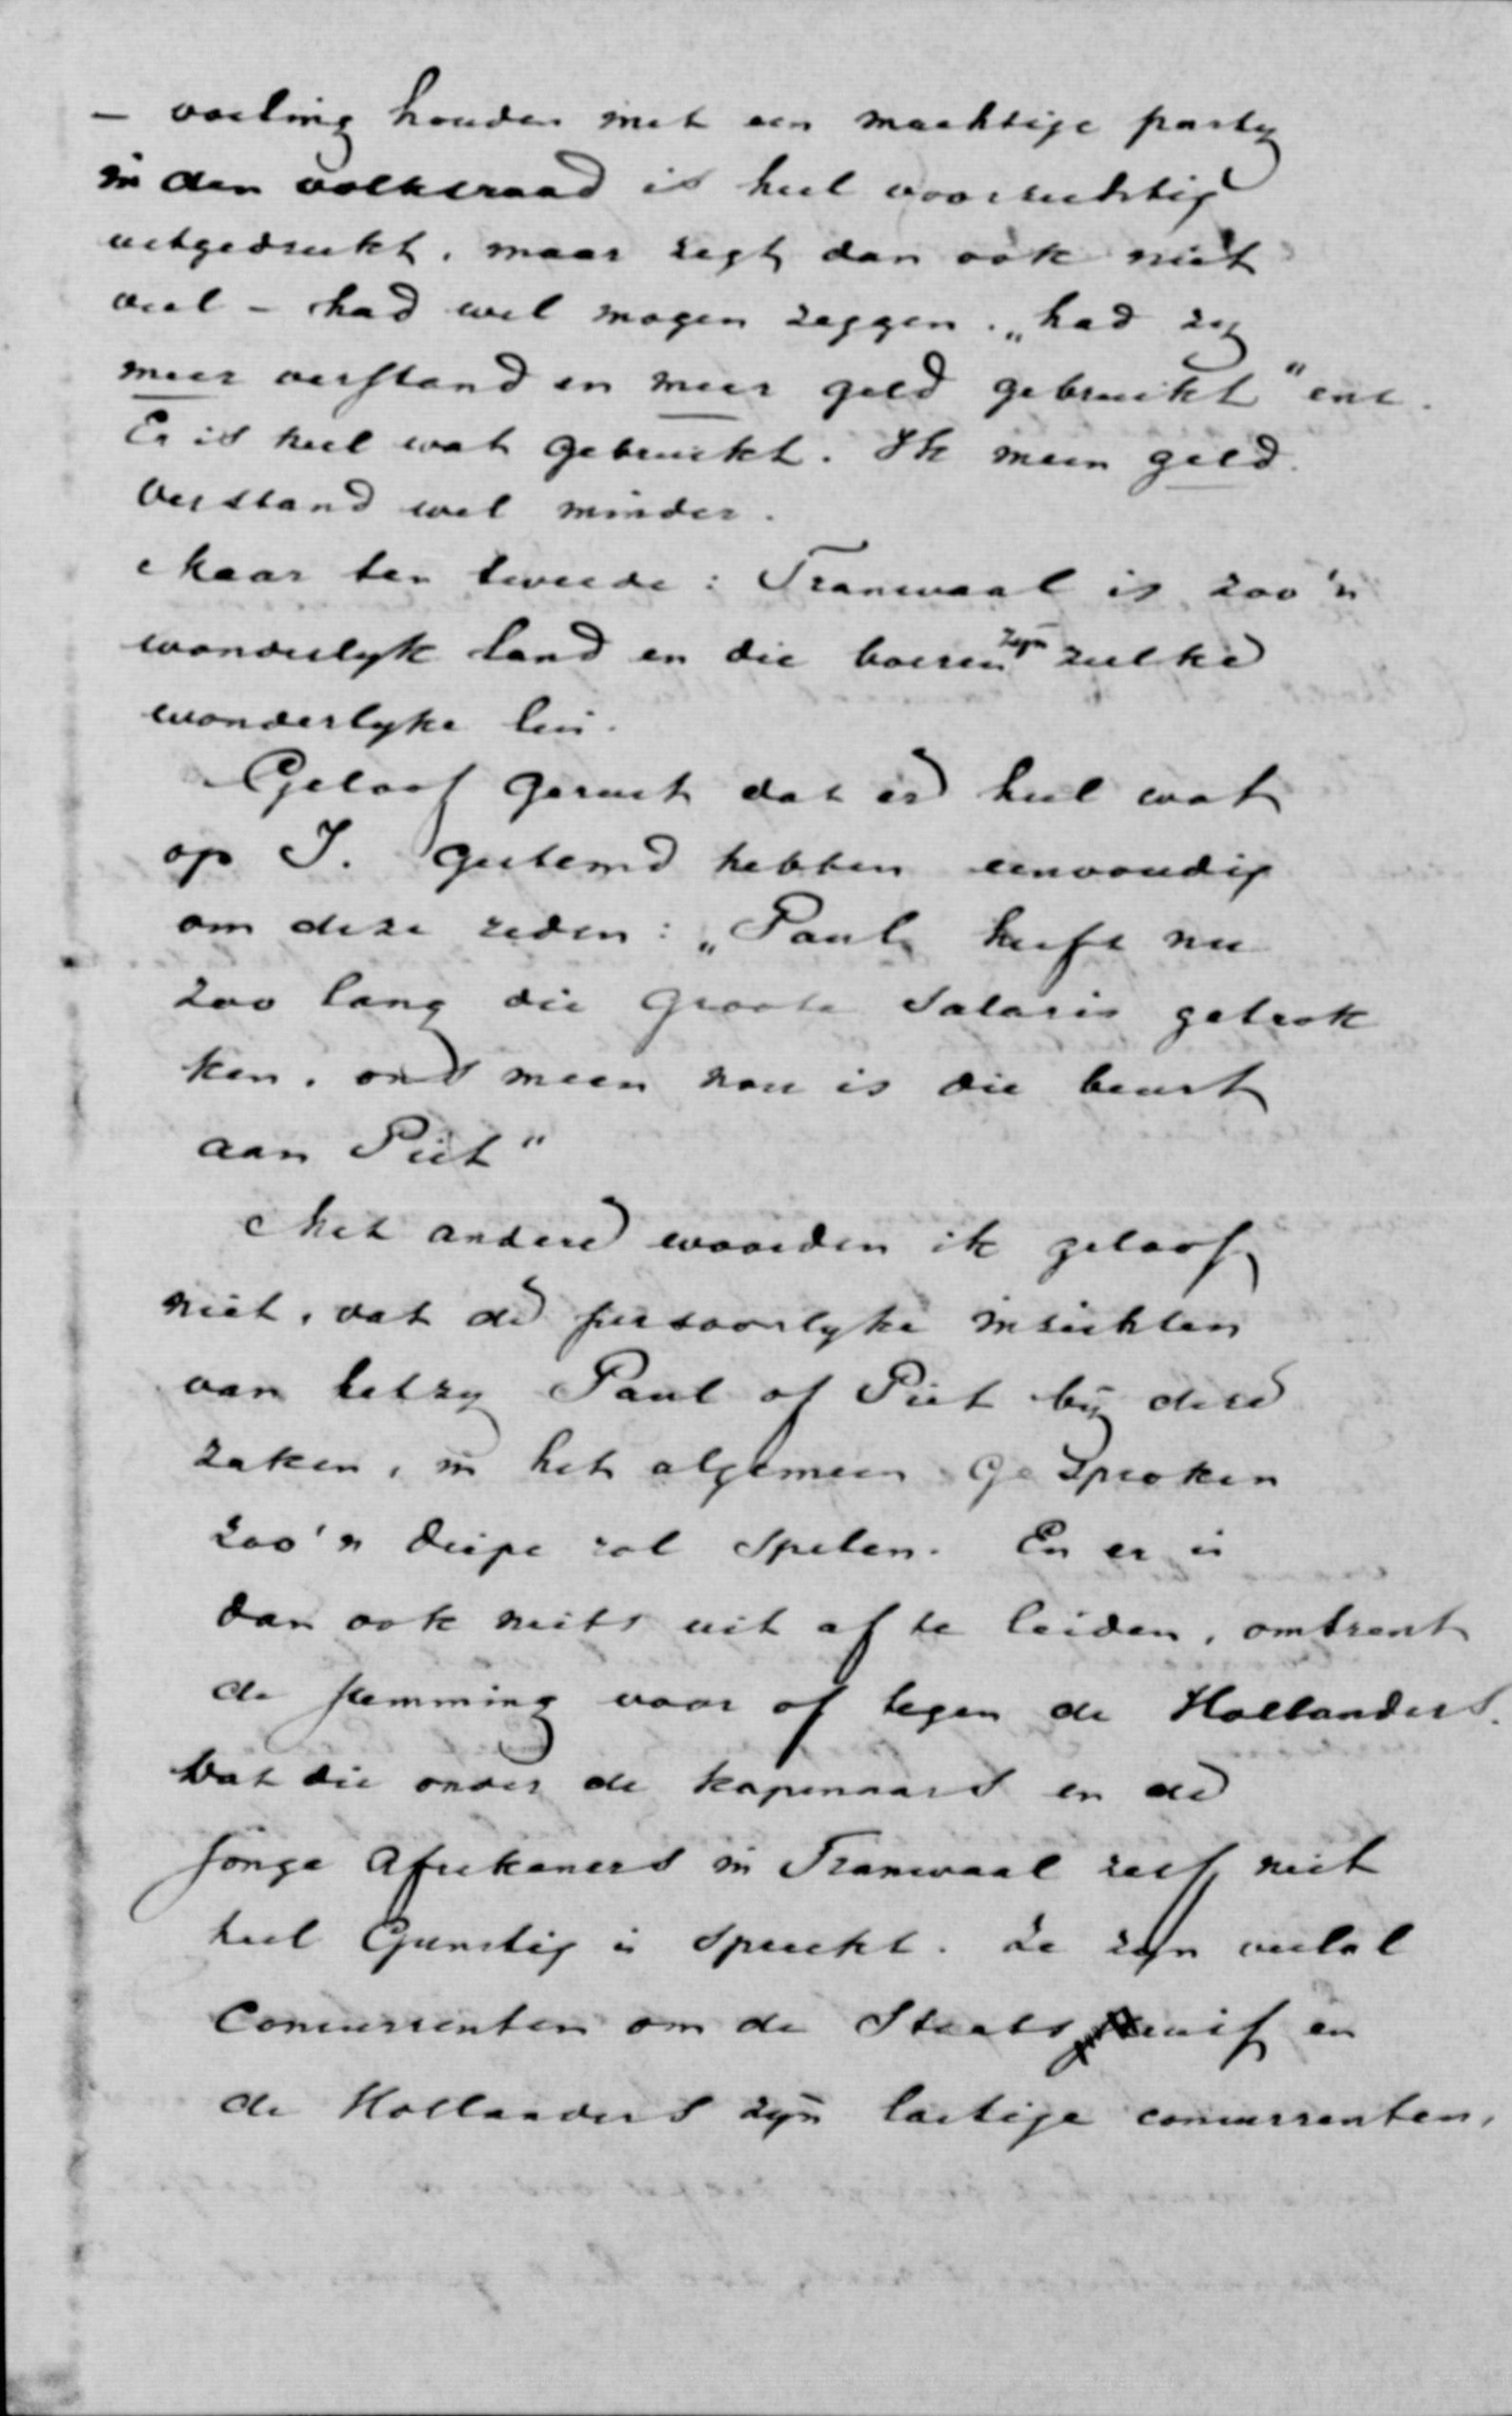 - voeling houden met een machtige party
in den volksraad is heel voorzichtig
uitgedrukt, maar zegt dan ook niet
veel - had wel mogen zeggen. „had zy
meer verstand en meer geld gebruikt" enz.
Er is heel wat gebruikt. Ik meen geld.
Verstand wel minder.
Maar ten tweede: Transvaal is zoo'n
wonderlyk land en die boeren zyn zulke
wonderlyke lui.
Geloof gerust dat er heel wat
op J. gestemd hebben eenvoudig
om deze reden: „Paul heeft nu
zoo lang die groote salaris getrok
ken, ons meen nou is die beurt
aan Piet"
Met andere woorden ik geloof
niet, dat de persoonlyke inzichten
van hetzy Paul of Piet by deze
zaken, in het algemeen gesproken
zoo'n diepe rol spelen. En er is
dan ook niets uit af te leiden, omtrent
de stemming voor of tegen de Hollanders.
Dat die onder de kapenaars en de
jonge Afrikaners in Transvaal zelf niet
heel gunstig is spreekt. Ze zyn veelal
concurrenten om de Staatsruif en
de Hollanders zyn lastige concurrenten,